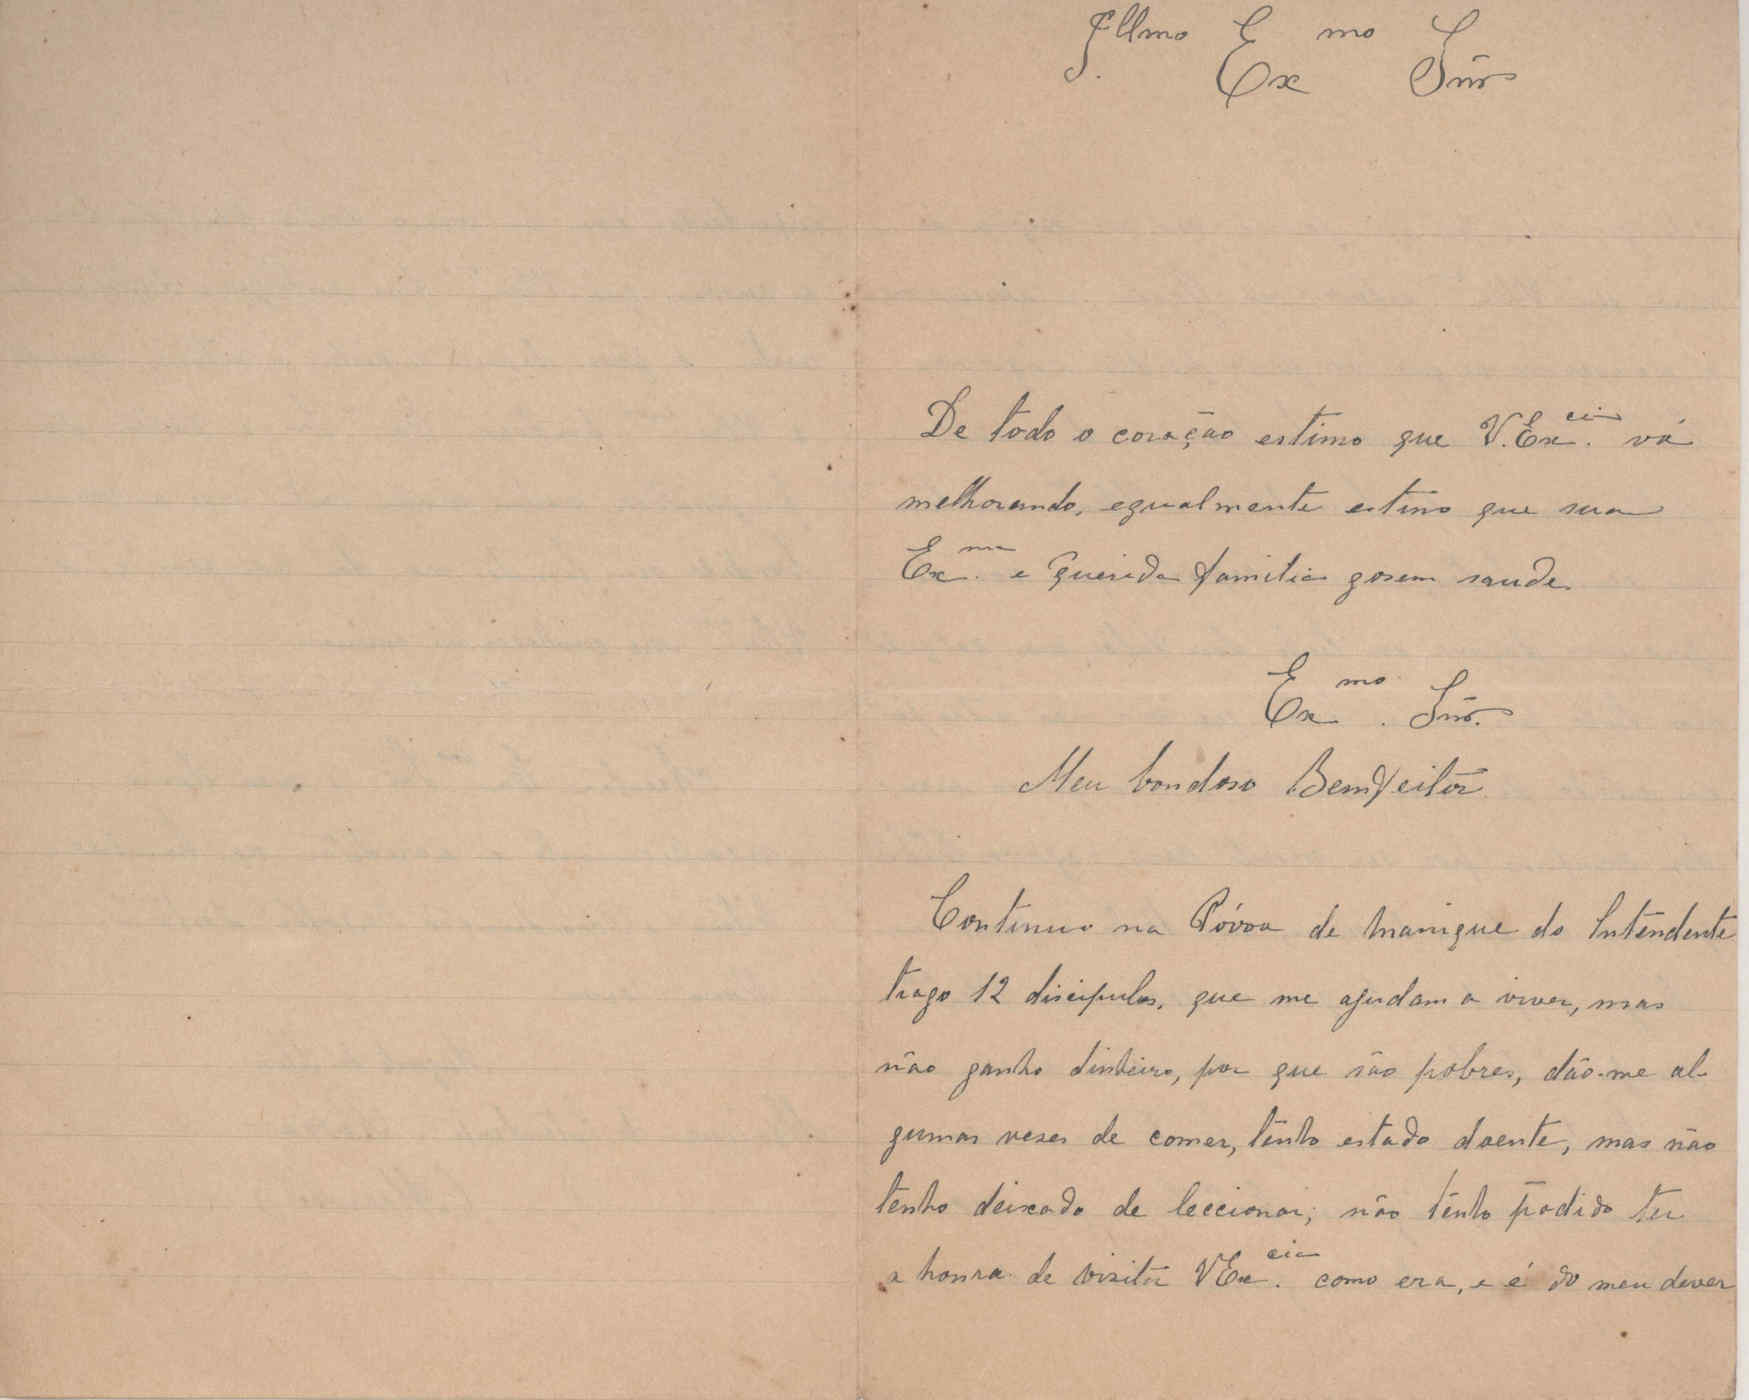 Illmo Exmo Snr
De todo o coração estimo que V. Excia. vá
melhorando, egualmente estimo que sua
Exma. e querida familia gosem saude.
Exmo. Snr.
Meu bondoso Bemfeitor
Continuo na Póvoa de Manique do Intendente
trago 12 discipulos, que me ajudam a viver, mas
não ganho dinheiro, por que são pobres, dão-me al-
gumas veses de comer, tenho estado doente, mas não
tenho deixado de leccionar; não tenho podido ter
a honra de visitar VExcia. como era, e é do meu dever